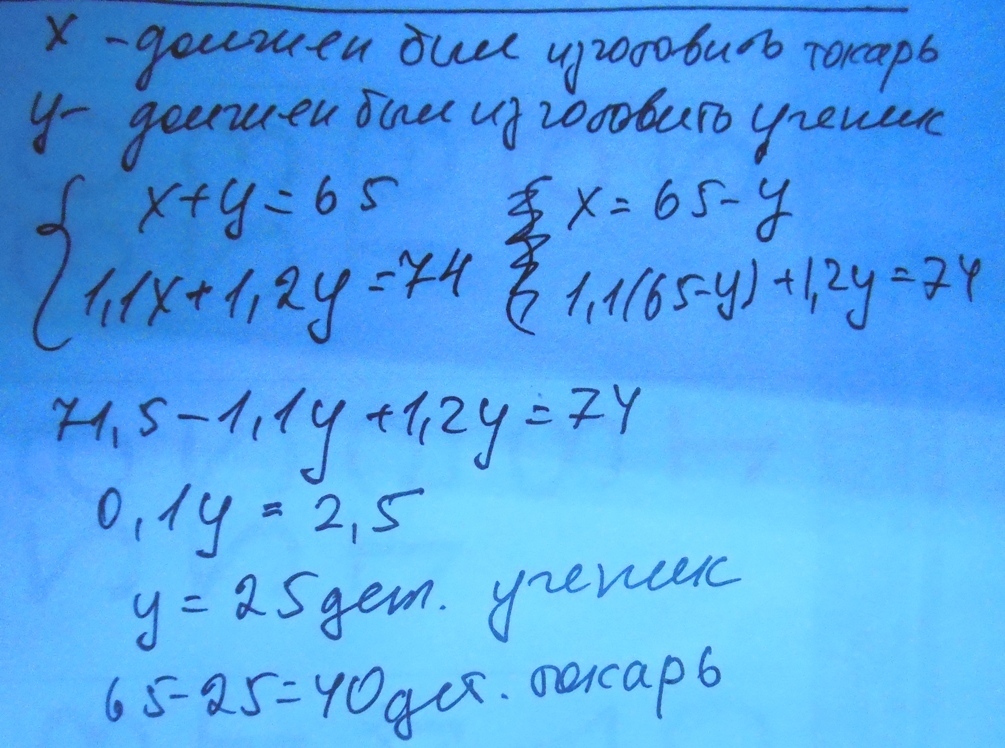 x - должен был изготовить токарь
y - должен был изготовить ученик
x+y=65 x=65-y
1,1x+1,2y=74 1,1(65-y)+1,2y=74
71,5-1,1y+1,2y=74
0,1y=2,5
y=25 дет. ученик
65-25=40 дет. токарь